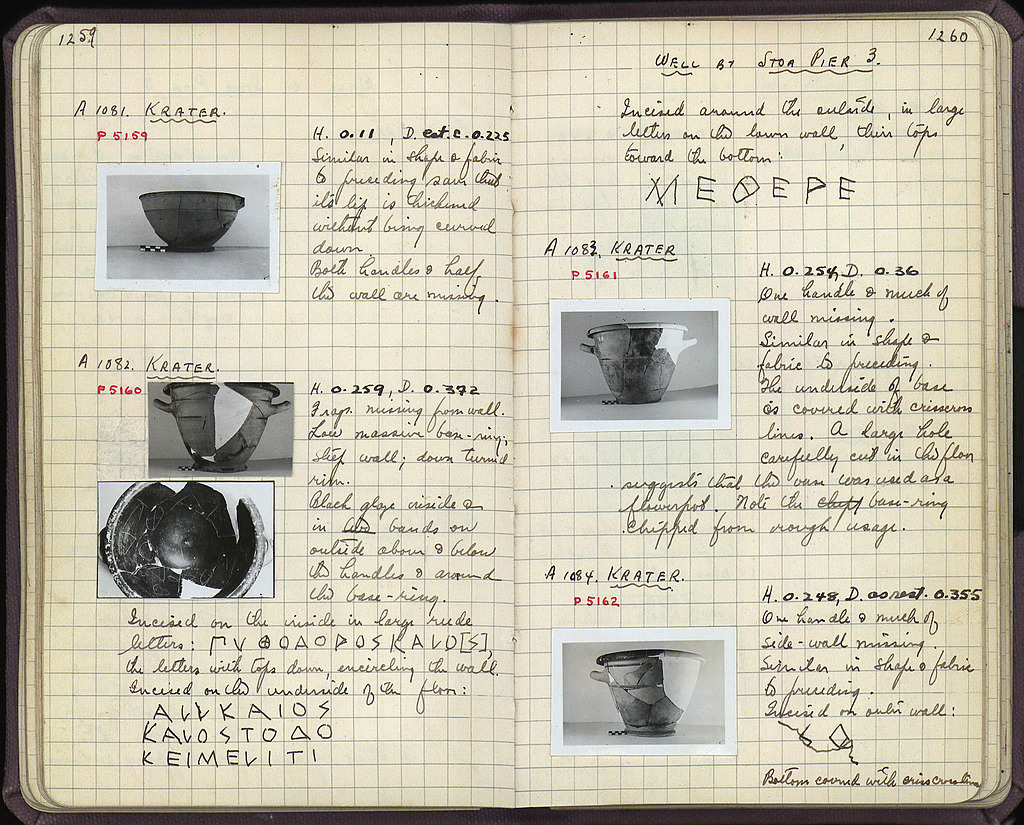 1259
A 1081. KRATER.
P 5159
H. 0.11, D. est. c. 0.225
Similar in shape & fabric
to preceding save that
its lip is thickened
without being curved
down.
Both handles & half
the wall are missing.
A 1082. KRATER.
P 5160
H. 0.259, D. 0.372
Frags. missing from wall.
Low massive base-ring;
steep wall; down turned
rim.
Black glaze inside &
in two bands on
outside above & below
the handles & around
the base-ring.
Incised on the inside in large rude
letters: ΠVΘΟΔΟΡΟSΚΑVΟ[S],
the letters with tops down, encircling the wall.
Incised on the underside of the floor:
ΑVVΚΑΙΟS
ΚΑVΟSΤΟΔΟ
ΚΕΙΜΕVΙΤΙ
1260
WELL BY STOA PIER 3.
Incised around the outside, in large
letters on the lower wall, their tops
toward the bottom:
ΕΟΕΡΕ
A 1083. KRATER
P 5161
H. 0.254, D. 0.36
One handle & much of
wall missing.
Similar in shape &
fabric to preceding.
The underside of base
is covered with crisscross
lines. A large hole
carefully cut in the floor
suggests that the vase was used as a
flowerpot. Note the chipt base-ring
chipped from rough usage.
A 1084. KRATER.
P 5162
H. 0.248, D. as rest. 0.355
One handle & much of
side-wall missing.
Similar in shape & fabric
to preceding.
Incised on outer wall:
Bottom covered with crisscross lines